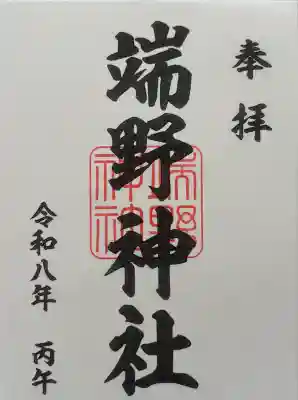 奉拝
端野神社
端野神社
令和八年 丙午